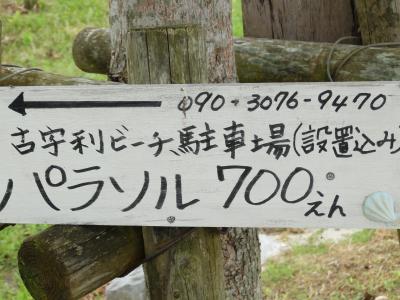 ← 090-3076-9470
古宇利ビーチ、駐車場(設置込み)
パラソル 700えん